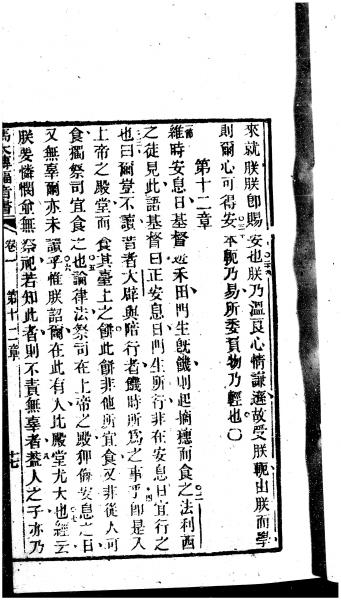 來就朕朕即賜安也朕乃溫良心情謙遜故受朕軛出朕而學
則爾心可得安本軛乃易所委負物乃輕也
第十二章
維時安息日基督遊禾田門生旣饑則起摘穗而食之法利西
之徒見此語基督曰正安息日門生所行非在安息日宜行之
也曰爾豈不讀書者大辟與陪行者饑時所為之事乎卽是入
上帝之殿堂而食其臺上之餅此餅非他所宜食又非從人可
食獨祭司宜食之也論律法祭司在上帝之殿狎侮安息之日
又無辜爾亦未讀乎惟朕詔爾在此有人比殿堂尤大也經云
朕愛憐憫並無祭祀若知此者則不責無辜者蓋人之子亦乃
馬太傳福音書 卷一 第十二章 十七